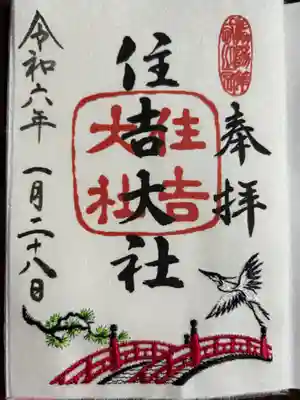 奉拝
住吉大社
住吉
大社
令和六年 一月二十八日